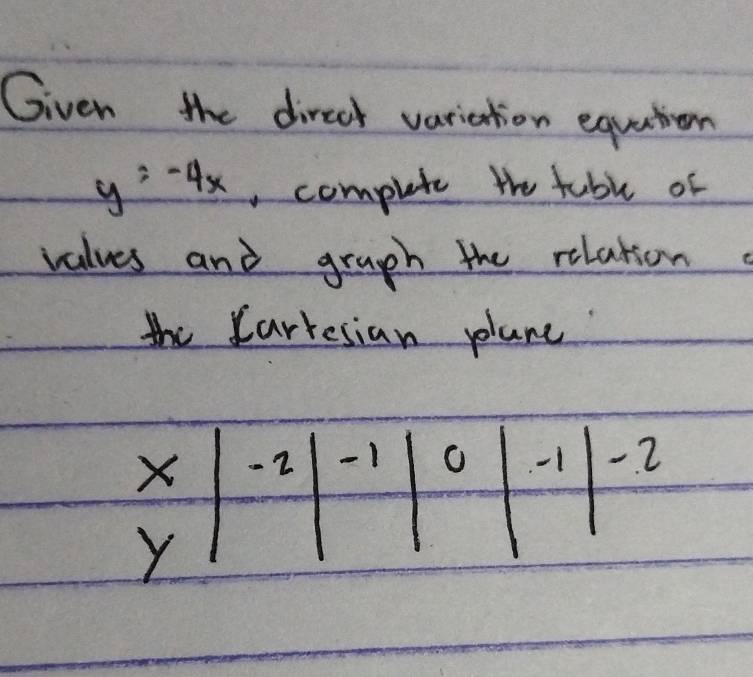 Given the direct variation equation
y = -4x, complete the table of
values and graph the relation
the Cartesian plane
X | -2 | -1 | 0 | -1 | -2
Y